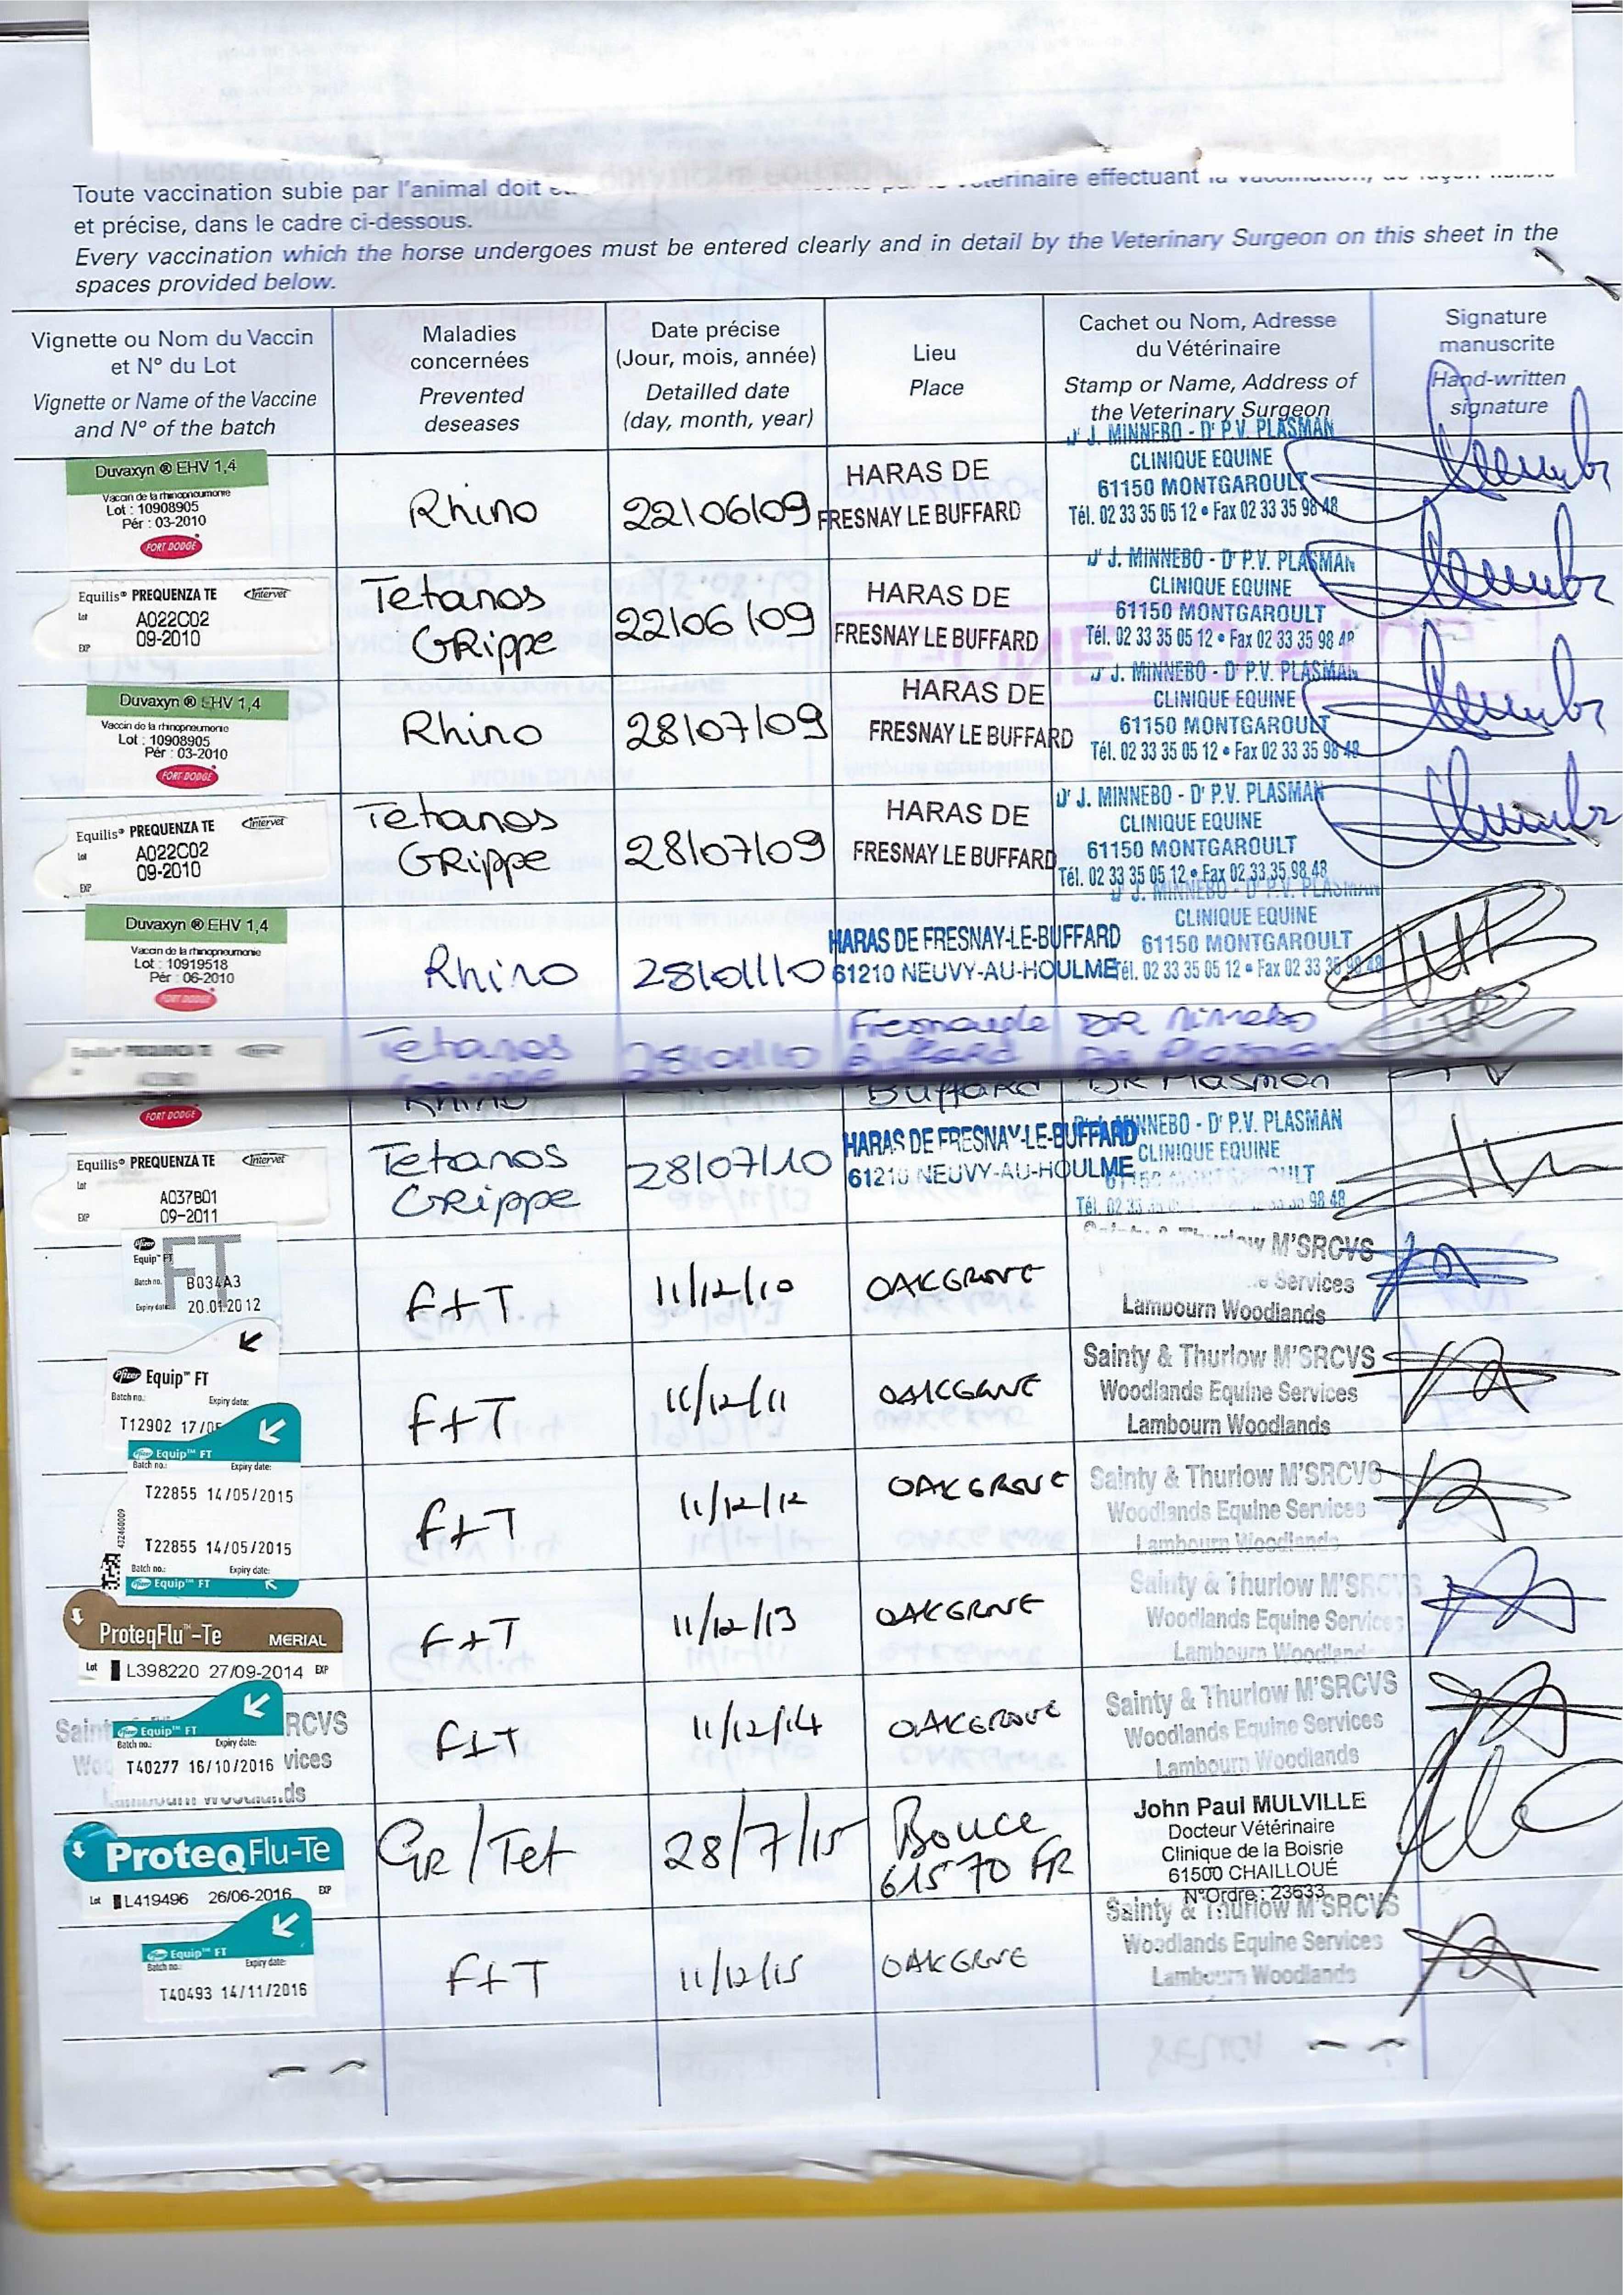 Toute vaccination subie par l'animal doit
vétérinaire effectuant la vaccination, de façon lisible
et précise, dans le cadre ci-dessous.
Every vaccination which the horse undergoes must be entered clearly and in detail by the Veterinary Surgeon on this sheet in the
spaces provided below.
Vignette ou Nom du Vaccin
et N° du Lot
Vignette or Name of the Vaccine
and N° of the batch
Maladies
concernées
Prevented
deseases
Date précise
(Jour, mois, année)
Detailled date
(day, month, year)
Lieu
Place
Cachet ou Nom, Adresse
du Vétérinaire
Stamp or Name, Address of
the Veterinary Surgeon
Signature
manuscrite
Hand-written
signature
Duvaxyn ® EHV 1,4
Vaccin de la rhinopneumonie
Lot : 10908905
Pér : 03-2010
FORT DODGE
Rhino
22/06/09
HARAS DE
FRESNAY LE BUFFARD
Dr J. MINNEBO - Dr P.V. PLASMAN
CLINIQUE EQUINE
61150 MONTGAROULT
Tél. 02 33 35 05 12 • Fax 02 33 35 98 48
Equilis® PREQUENZA TE Intervet
Lot
A022C02
EXP 09-2010
Tetanos
GRippe
22/06/09
HARAS DE
FRESNAY LE BUFFARD
Dr J. MINNEBO - Dr P.V. PLASMAN
CLINIQUE EQUINE
61150 MONTGAROULT
Tél. 02 33 35 05 12 • Fax 02 33 35 98 48
Duvaxyn ® EHV 1,4
Vaccin de la rhinopneumonie
Lot : 10908905
Pér : 03-2010
FORT DODGE
Rhino
28/07/09
HARAS DE
FRESNAY LE BUFFARD
Dr J. MINNEBO - Dr P.V. PLASMAN
CLINIQUE EQUINE
61150 MONTGAROULT
Tél. 02 33 35 05 12 • Fax 02 33 35 98 48
Equilis® PREQUENZA TE Intervet
Lot
A022C02
09-2010
EXP
Tetanos
GRippe
28/07/09
HARAS DE
FRESNAY LE BUFFARD
Dr J. MINNEBO - Dr P.V. PLASMAN
CLINIQUE EQUINE
61150 MONTGAROULT
Tél. 02 33 35 05 12 • Fax 02 33 35 98 48
Duvaxyn ® EHV 1,4
Vaccin de la rhinopneumonie
Lot : 10919518
Pér : 06-2010
FORT DODGE
Rhino
28/01/10
HARAS DE FRESNAY-LE-BUFFARD
61210 NEUVY-AU-HOULME
Dr J. MINNEBO - Dr P.V. PLASMAN
CLINIQUE EQUINE
61150 MONTGAROULT
Tél. 02 33 35 05 12 • Fax 02 33 35 98 48
Equilis® PREQUENZA TE
Tetanos
28/01/10
Buffard
DR
FORT DODGE
Rhino
Buffard
DR Plasman
Equilis® PREQUENZA TE Intervet
Lot
A037B01
EXP 09-2011
Tetanos
GRippe
28/07/10
HARAS DE FRESNAY-LE-BUFFARD
61210 NEUVY-AU-HOULME
MINNEBO - Dr P.V. PLASMAN
CLINIQUE EQUINE
98 48
FT
Equip™ FT
Batch no. B034A3
Expiry date: 20.01.2012
F+T
11/12/10
OAKGROVE
Thurlow M'SRCVS
Services
Lambourn Woodlands
Pfizer Equip™ FT
Batch no.: Expiry date:
T12902
F+T
11/12/11
OAKGROVE
Sainty & Thurlow M'SRCVS
Woodlands Equine Services
Lambourn Woodlands
Equip™ FT
Batch no.: Expiry date:
T22855 14/05/2015
T22855 14/05/2015
Batch no.: Expiry date:
Equip™ FT
F+T
11/12/12
OAKGROVE
Sainty & Thurlow M'SRCVS
Woodlands Equine Services
Lambourn Woodlands
ProteqFlu™-Te MERIAL
Lot L398220 27/09-2014 EXP
F+T
11/12/13
OAKGROVE
Sainty & Thurlow M'SRCVS
Woodlands Equine Services
Lambourn Woodlands
Equip™ FT
Batch no.: Expiry date:
T40277 16/10/2016
F+T
11/12/14
OAKGROVE
Sainty & Thurlow M'SRCVS
Woodlands Equine Services
Lambourn Woodlands
ProteqFlu-Te
Lot L419496 26/06-2016 EXP
GR/Tet
28/7/15
Bouce
61570 FR
John Paul MULVILLE
Docteur Vétérinaire
Clinique de la Boisrie
61500 CHAILLOUÉ
N°Ordre : 23633
Equip™ FT
Batch no.: Expiry date:
T40493 14/11/2016
F+T
11/12/15
OAKGROVE
Sainty & Thurlow M'SRCVS
Woodlands Equine Services
Lambourn Woodlands